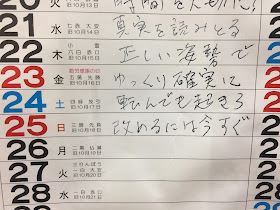 20 火 時間を大切に
21 水 七赤 大安 旧10月14日 真実を読みとる
22 木 小雪 六白 赤口 旧10月15日 正しい姿勢で
23 金 勤労感謝の日 五黄 先勝 旧10月16日 ゆっくり確実に
24 土 四緑 友引 旧10月17日 転んでも起きる
25 日 三碧 先負 旧10月18日 改めるには今すぐ
26 月 二黒 仏滅 旧10月19日
27 火 さんりんぼう 一白 大安 旧10月20日
28 水 赤口 旧10月21日